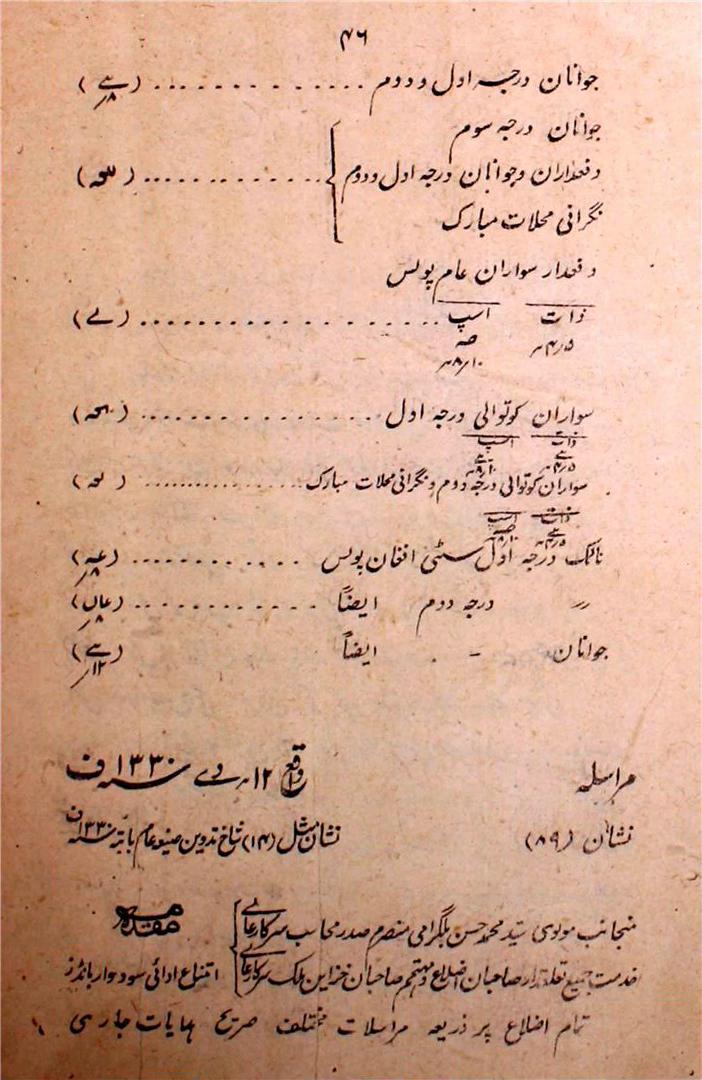 ۴۶
جوانان درجہ اول و دوم . . . . . . . . . . . . ( ۸؍ )
جوانان درجہ سوم
دفعداران وجوانان درجہ اول ودوم . . . . . . . . . . . . ( )
نگرانی محلات مبارک
دفعدار سواران عام پولس
ذات اسپ . . . . . . . . . . . . ( )
سواران کوتوالی درجہ اول . . . . . . . . . . . . ( )
ذات اسپ
سواران کوتوالی درجہ دوم و نگرانی محلات مبارک . . . . . . . . . . . . ( )
ذات اسپ
نائک درجہ اول سٹی افغان پولس . . . . . . . . . . . . ( ۸؍ )
〃 درجہ دوم ایضاً . . . . . . . . . . . . ( ۸؍ )
جوانان - ایضاً ( ۱۲؍ )
مراسلہ واقع ۱۲؍ دے ۱۳۳۰ سنہ ف
نشان (۸۹) نشان مثل (۱۴) شاخ تدوین صیغہ عام بابتہ ۱۳۳۰ سنہ ف
منجانب مولوی سید محمد حسن بلگرامی منصرم صدر محاسب سرکار عالی مقدمہ
خدمت جمیع تعلقدار صاحبان اضلاع و مہتمم صاحبان خزاین ملک سرکار عالی امتناع ادائی سود وار بانڈز
تمام اضلاع پر ذریعہ مراسلات مختلف صریح ہدایات جاری